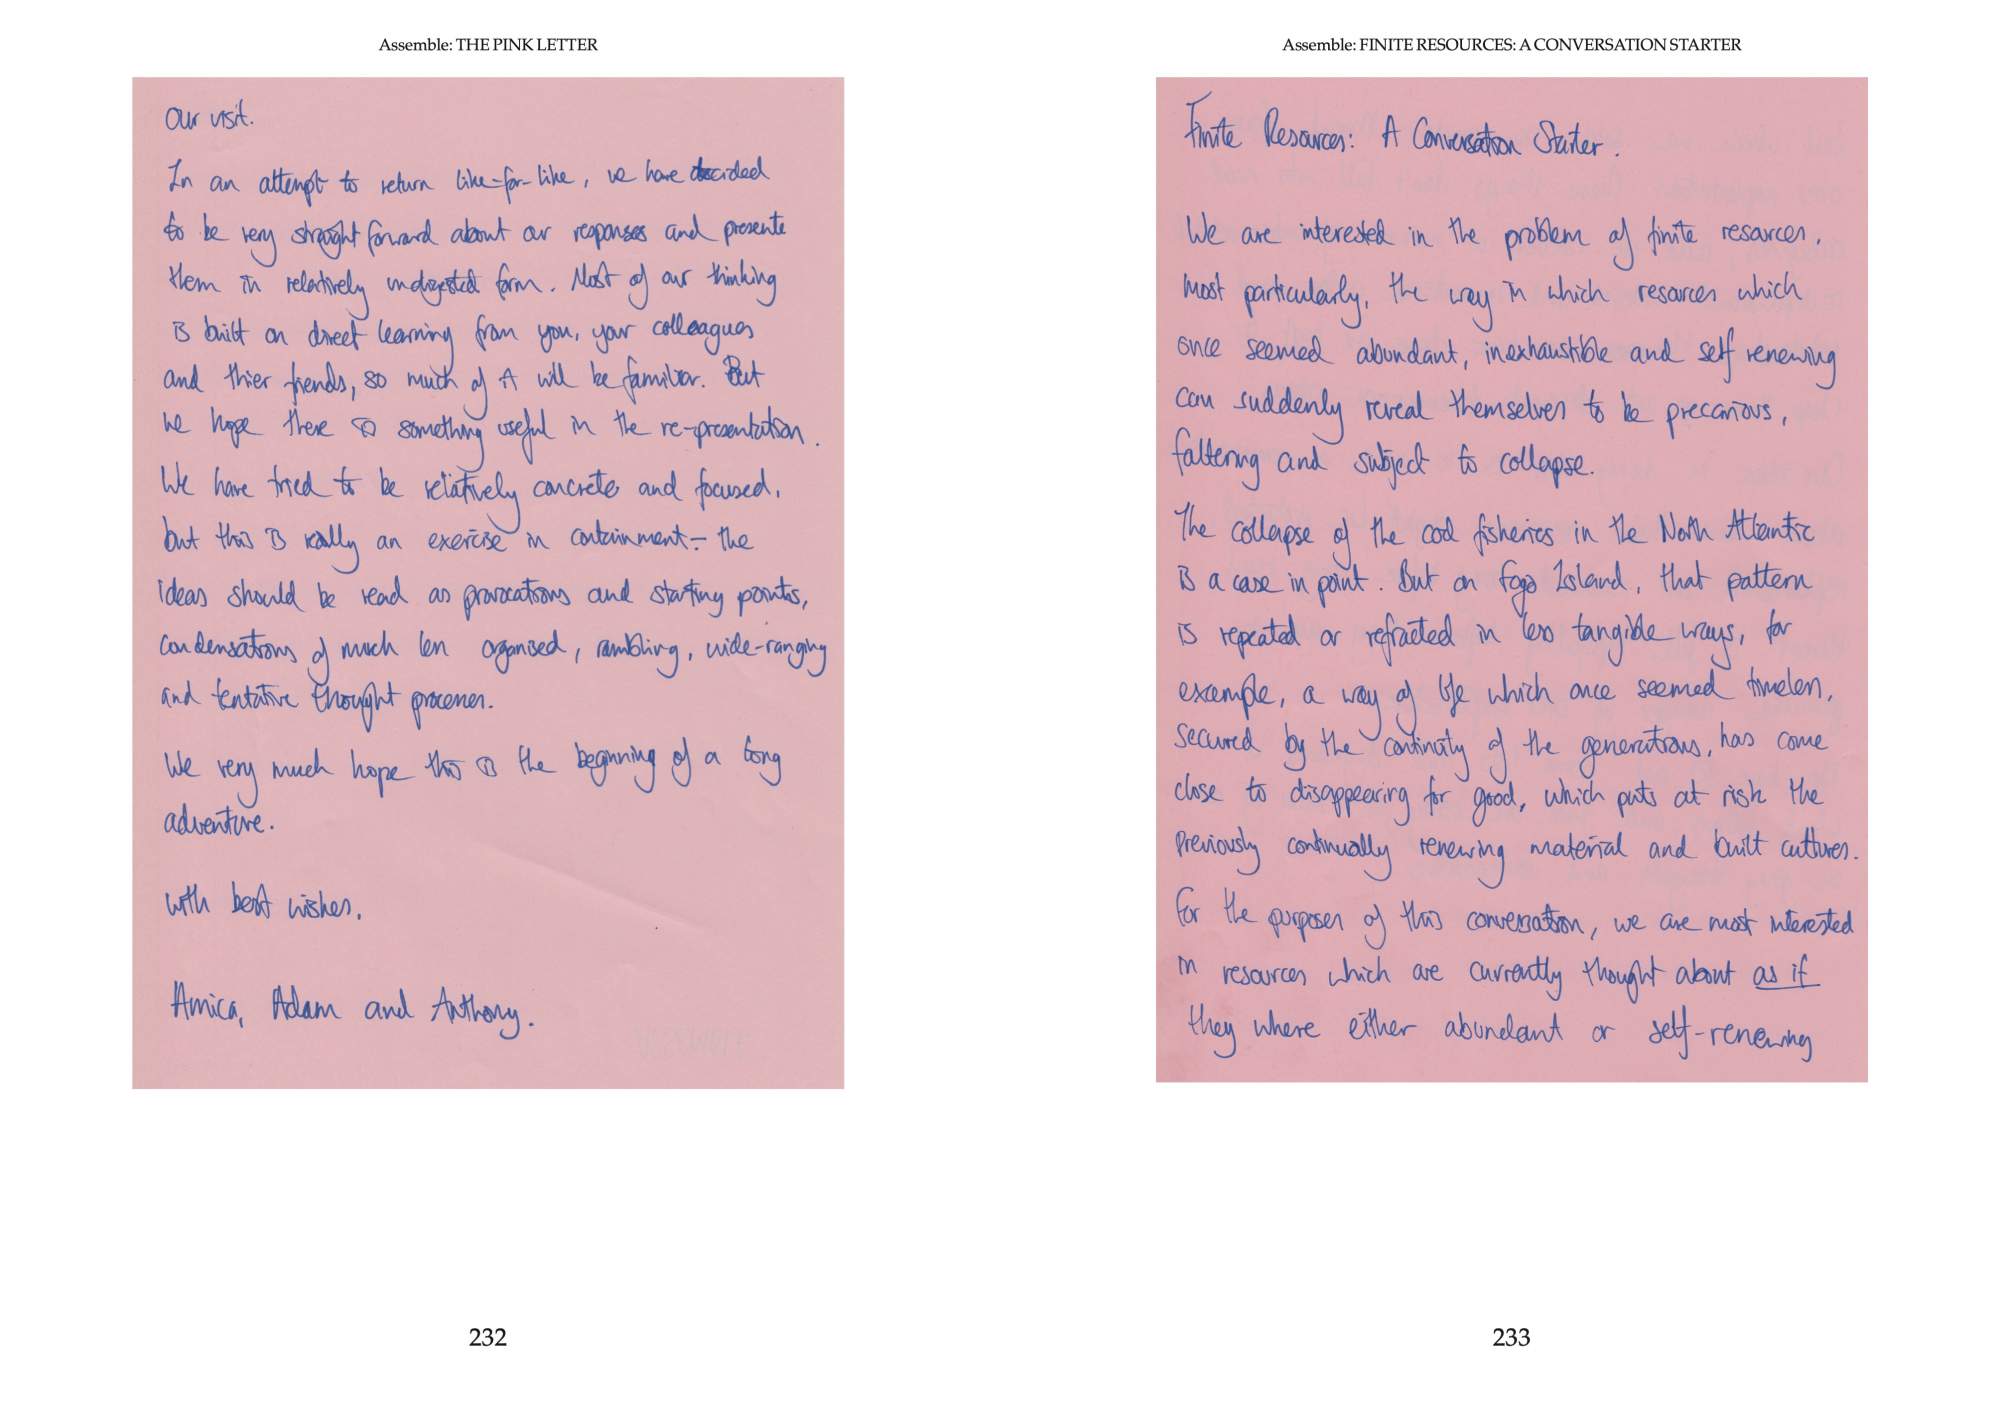 Assemble: THE PINK LETTER
our visit.
In an attempt to return like-for-like, we have decided
to be very straight forward about our responses and presente
them in relatively undigested form. Most of our thinking
is built on direct learning from you, your colleagues
and thier friends, so much of it will be familiar. But
we hope there is something useful in the re-presentation.
We have tried to be relatively concrete and focused,
but this is really an exercise in containment - the
ideas should be read as provocations and starting points,
condensations of much less organised, rambling, wide-ranging
and tentative thought processes.
We very much hope this is the beginning of a long
adventure.
with best wishes,
Amica, Adam and Anthony.
232
Assemble: FINITE RESOURCES: A CONVERSATION STARTER
Finite Resources: A Conversation Starter.
We are interested in the problem of finite resources,
most particularly, the way in which resources which
once seemed abundant, inexhaustible and self renewing
can suddenly reveal themselves to be precarious,
faltering and subject to collapse.
The collapse of the cod fisheries in the North Atlantic
is a case in point. But on Fogo Island, that pattern
is repeated or refracted in less tangible ways, for
example, a way of life which once seemed timeless,
secured by the continuity of the generations, has come
close to disappearing for good, which puts at risk the
previously continually renewing material and built cultures.
For the purposes of this conversation, we are most interested
in resources which are currently thought about as if
they where either abundant or self-renewing
233